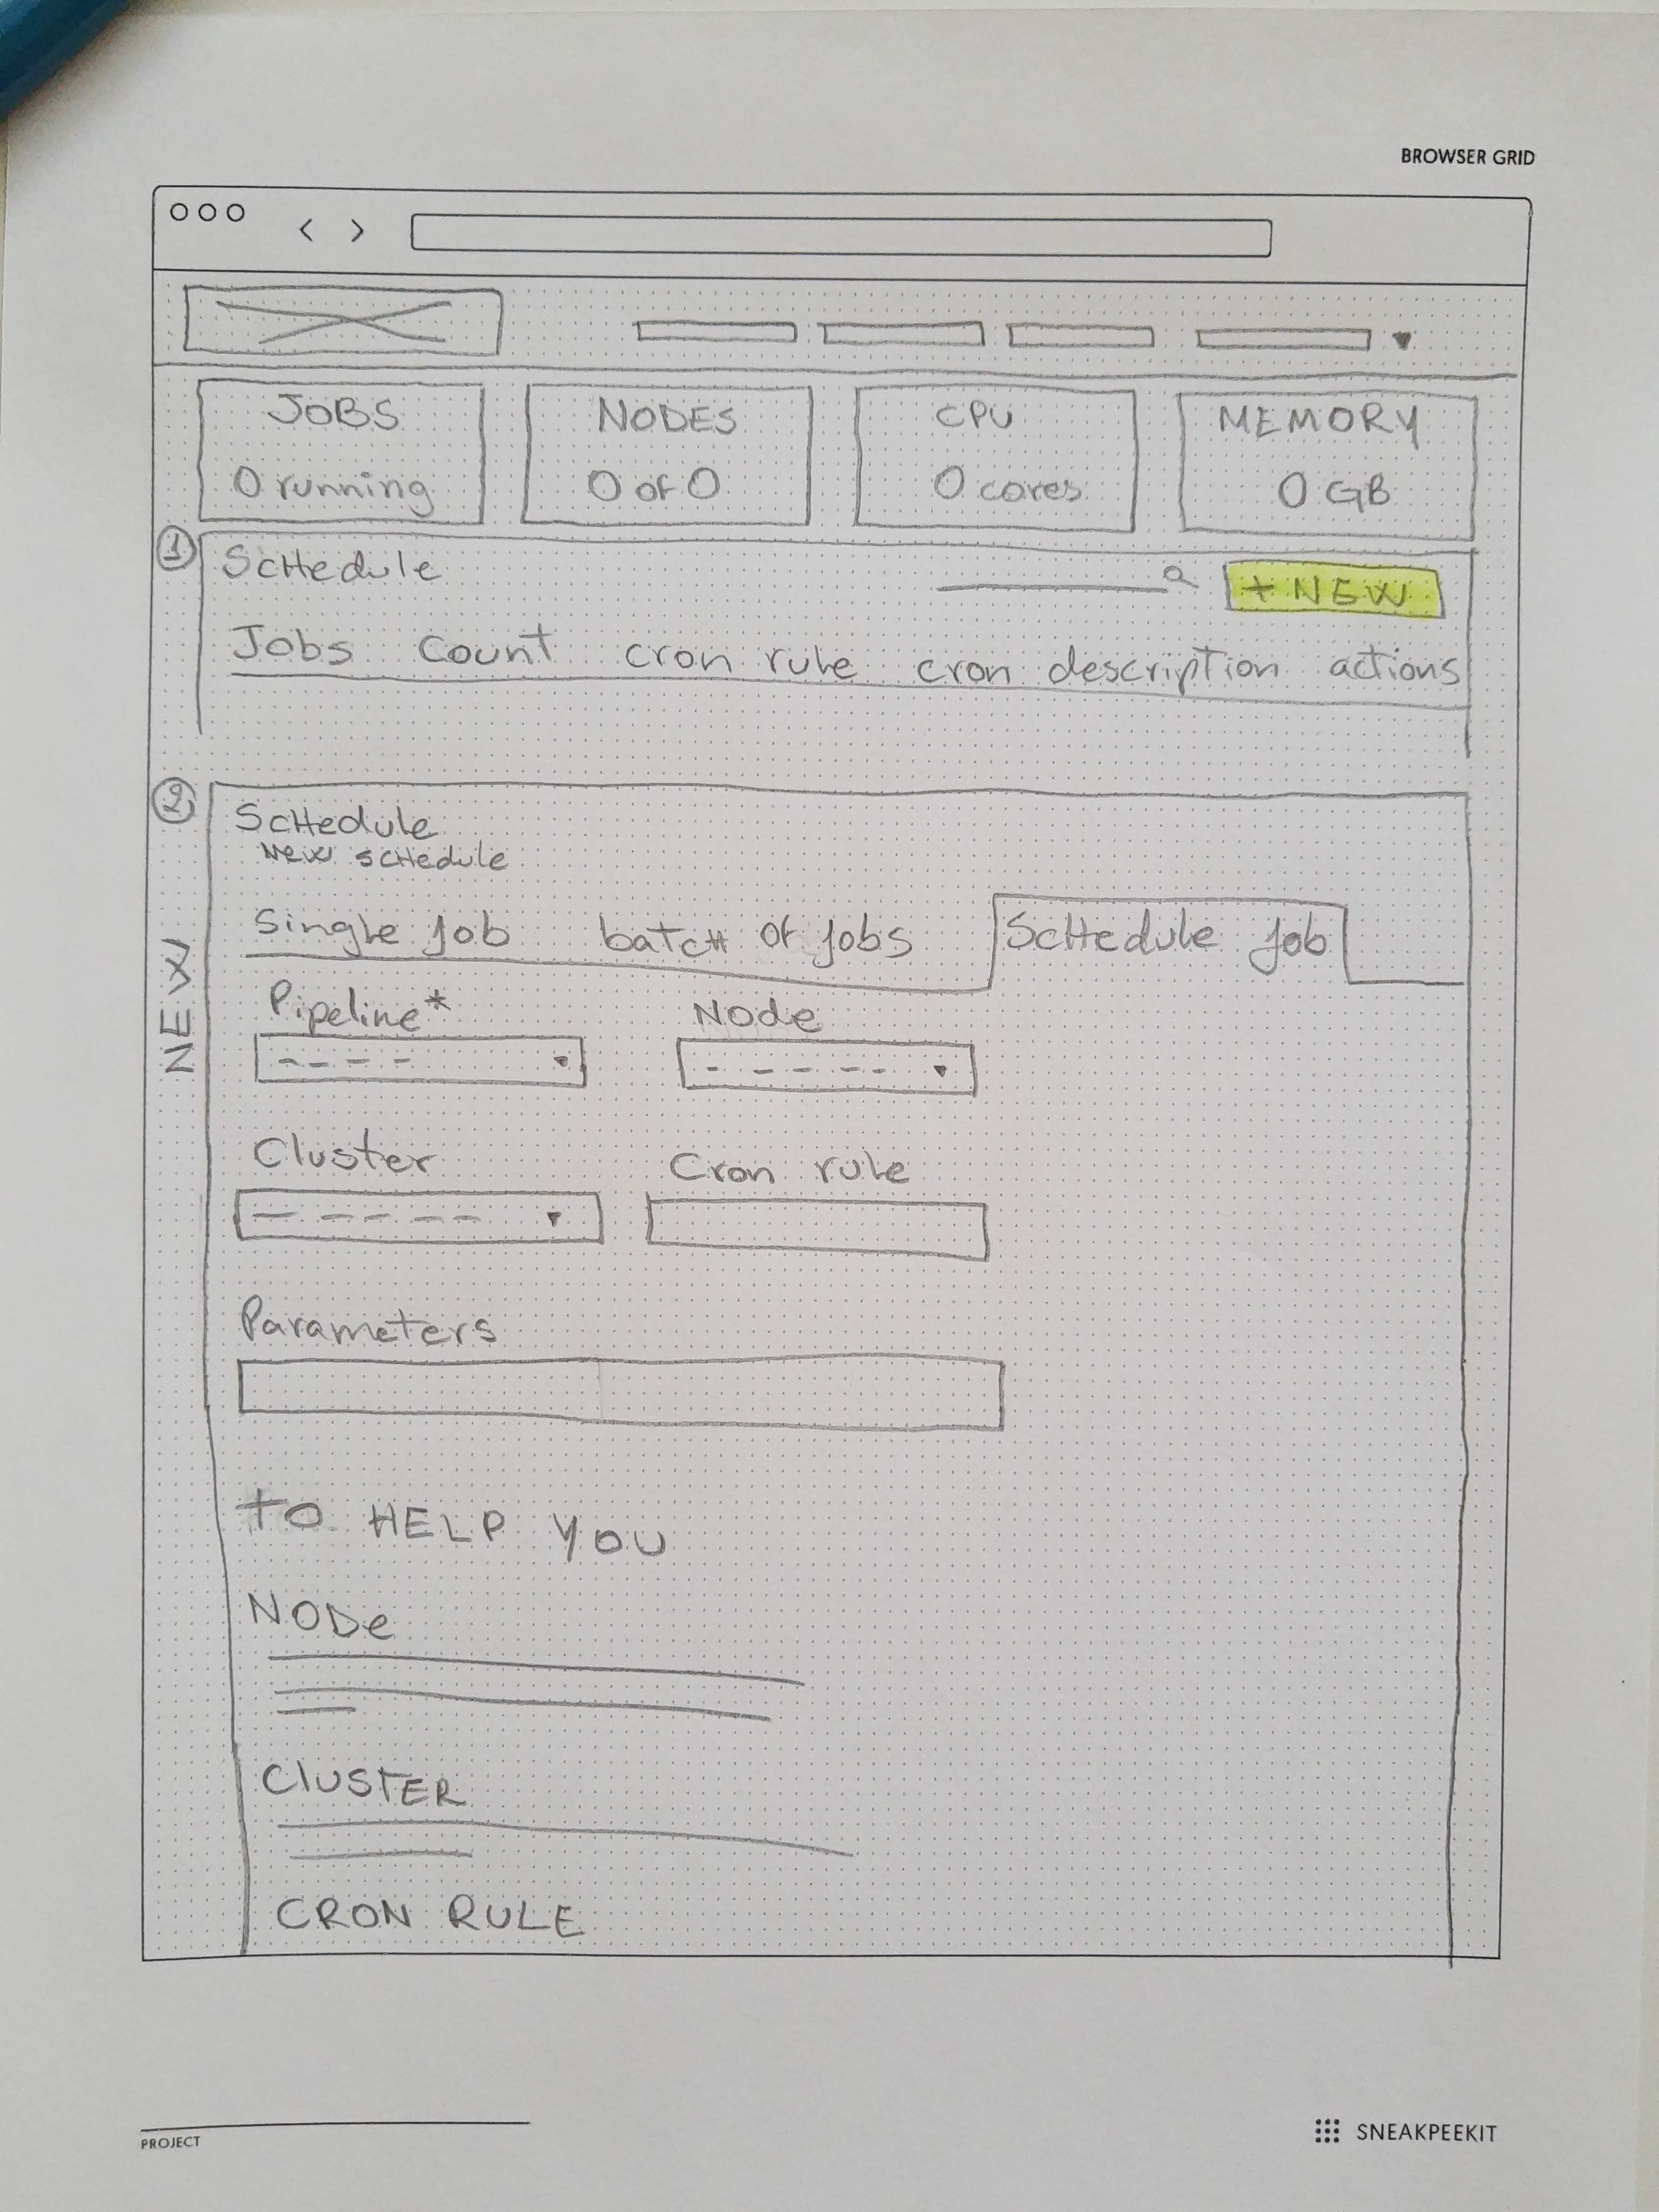 BROWSER GRID
JOBS NODES CPU MEMORY
0 running 0 of 0 0 cores 0 GB
1 Schedule + NEW
Jobs count cron rule cron description actions
2 Schedule
New schedule
NEW
Single job batch of jobs Schedule job
Pipeline* Node
Cluster Cron rule
Parameters
TO HELP YOU
NODe
CLUSTER
CRON RULE
PROJECT SNEAKPEEKIT